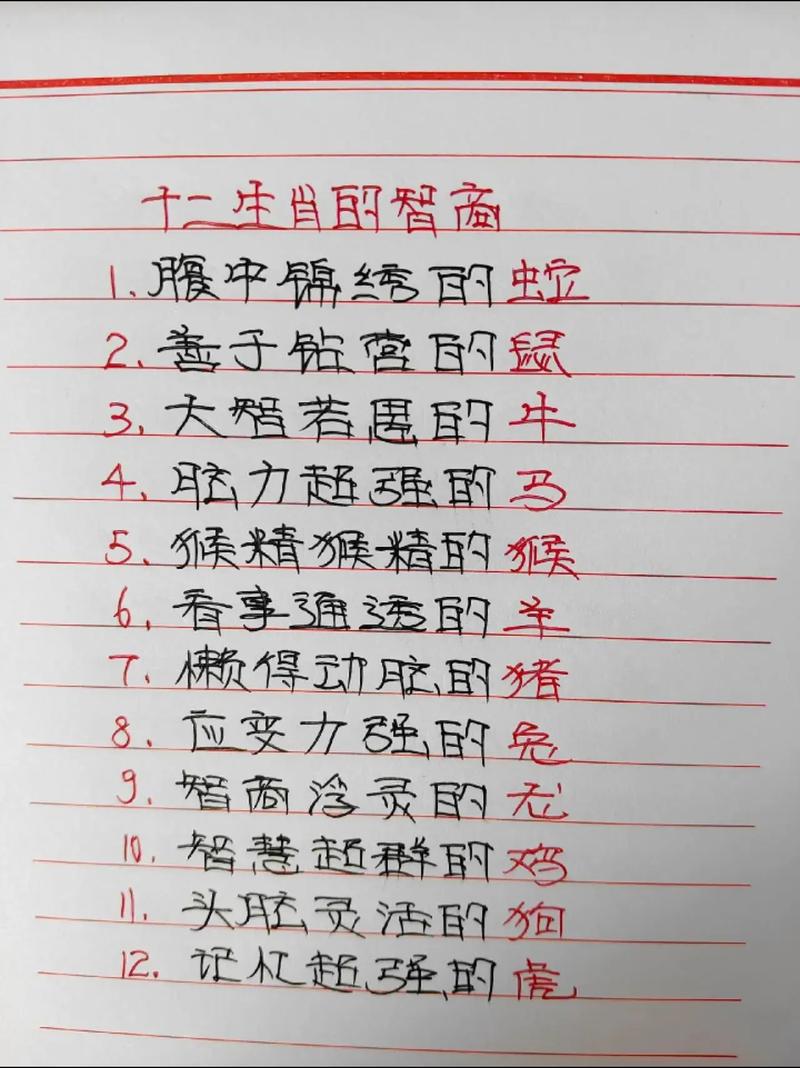 十二生肖的智商
1. 腹中锦绣的蛇
2. 善于钻营的鼠
3. 大智若愚的牛
4. 脑力超强的马
5. 猴精猴精的猴
6. 看事通透的羊
7. 懒得动脑的猪
8. 应变力强的兔
9. 智商浮灵的龙
10. 智慧超群的鸡
11. 头脑灵活的狗
12. 记忆超强的虎